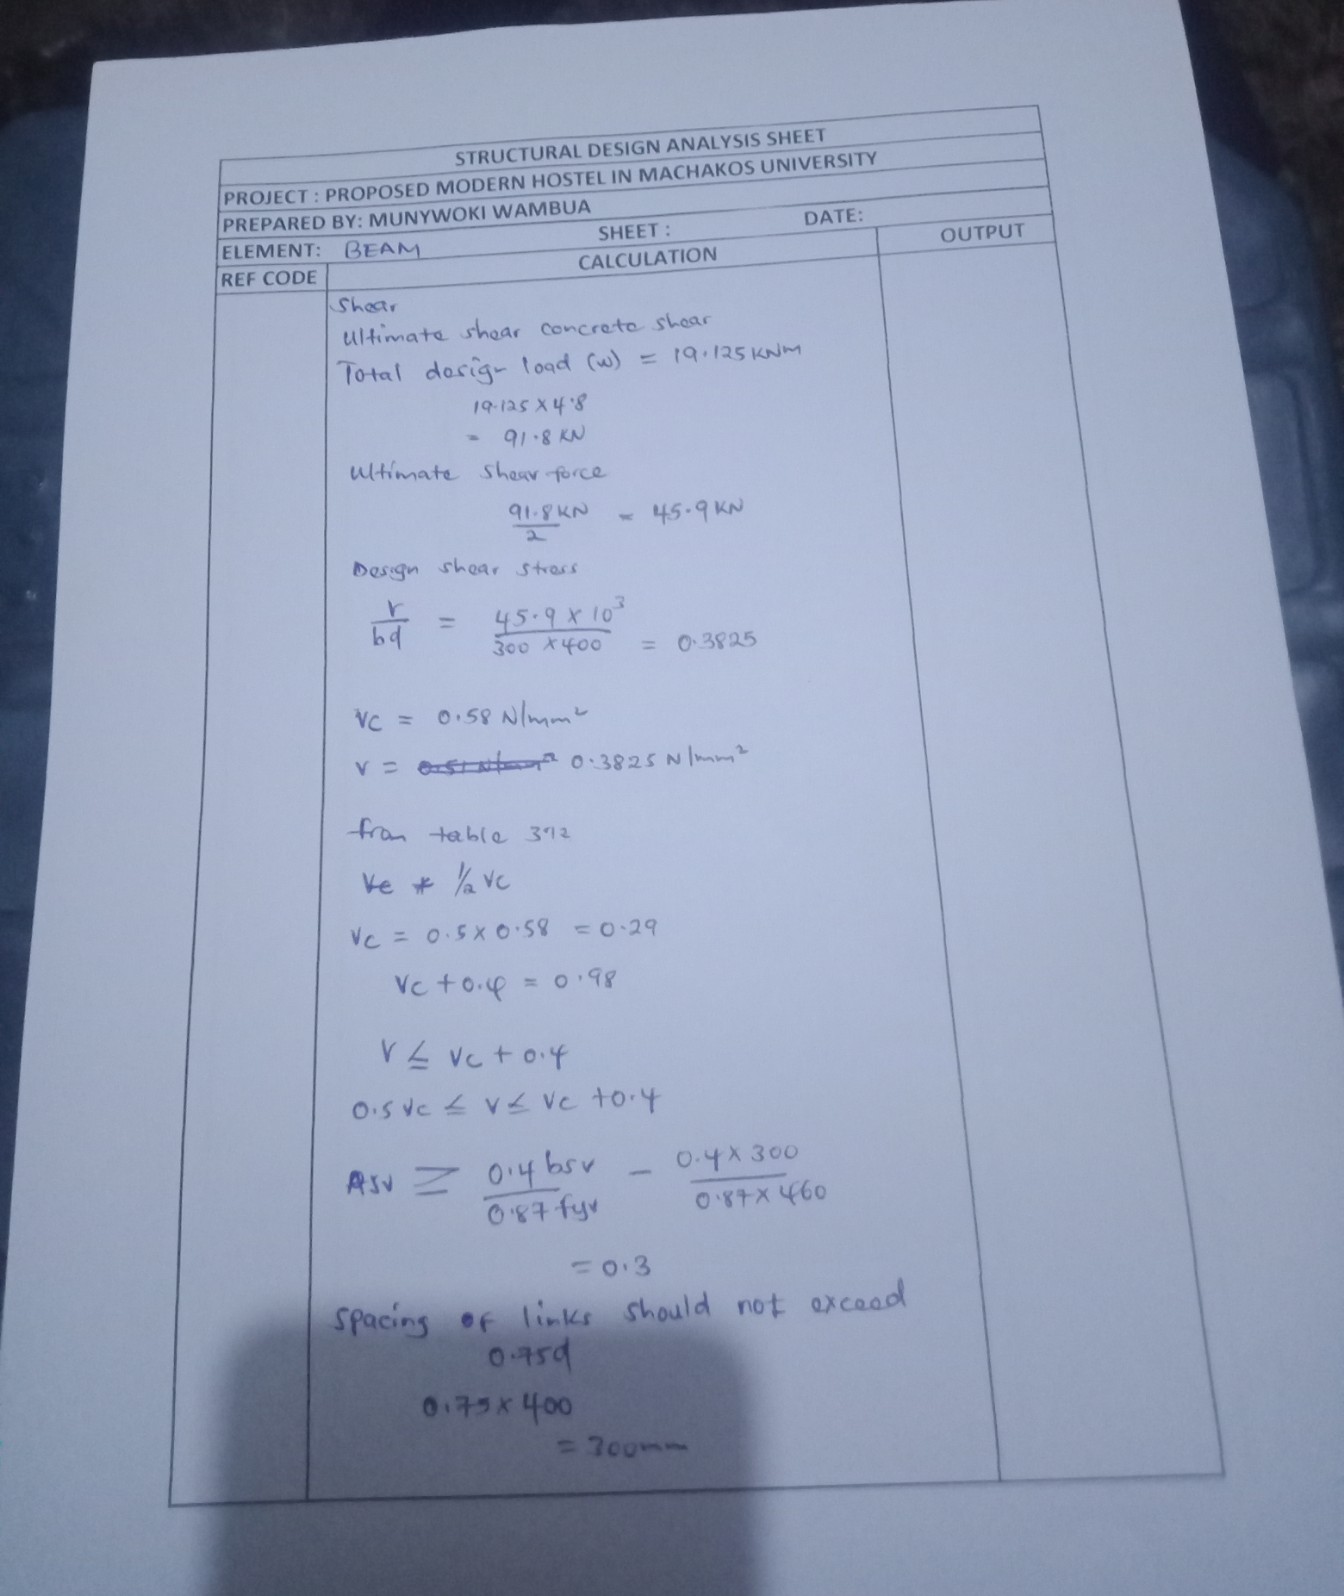 STRUCTURAL DESIGN ANALYSIS SHEET
PROJECT : PROPOSED MODERN HOSTEL IN MACHAKOS UNIVERSITY
PREPARED BY: MUNYWOKI WAMBUA
ELEMENT: BEAM SHEET : DATE:
REF CODE CALCULATION OUTPUT
Shear
Ultimate shear concrete shear
Total design load (w) = 19.125 KNm
19.125 X 4.8
= 91.8 KN
Ultimate shear force
91.8 KN / 2 = 45.9 KN
Design shear stress
v / bd = 45.9 X 10³ / 300 X 400 = 0.3825
Vc = 0.58 N/mm²
V = 0.3825 N/mm²
from table 3.12
½ Vc
Vc = 0.5 X 0.58 = 0.29
Vc + 0.4 = 0.98
V ≤ Vc + 0.4
0.5 Vc ≤ V ≤ Vc + 0.4
Asv ≥ 0.4 bsv / 0.87 fyv - 0.4 X 300 / 0.87 X 460
= 0.3
Spacing of links should not exceed
0.75d
0.75 X 400
= 300mm